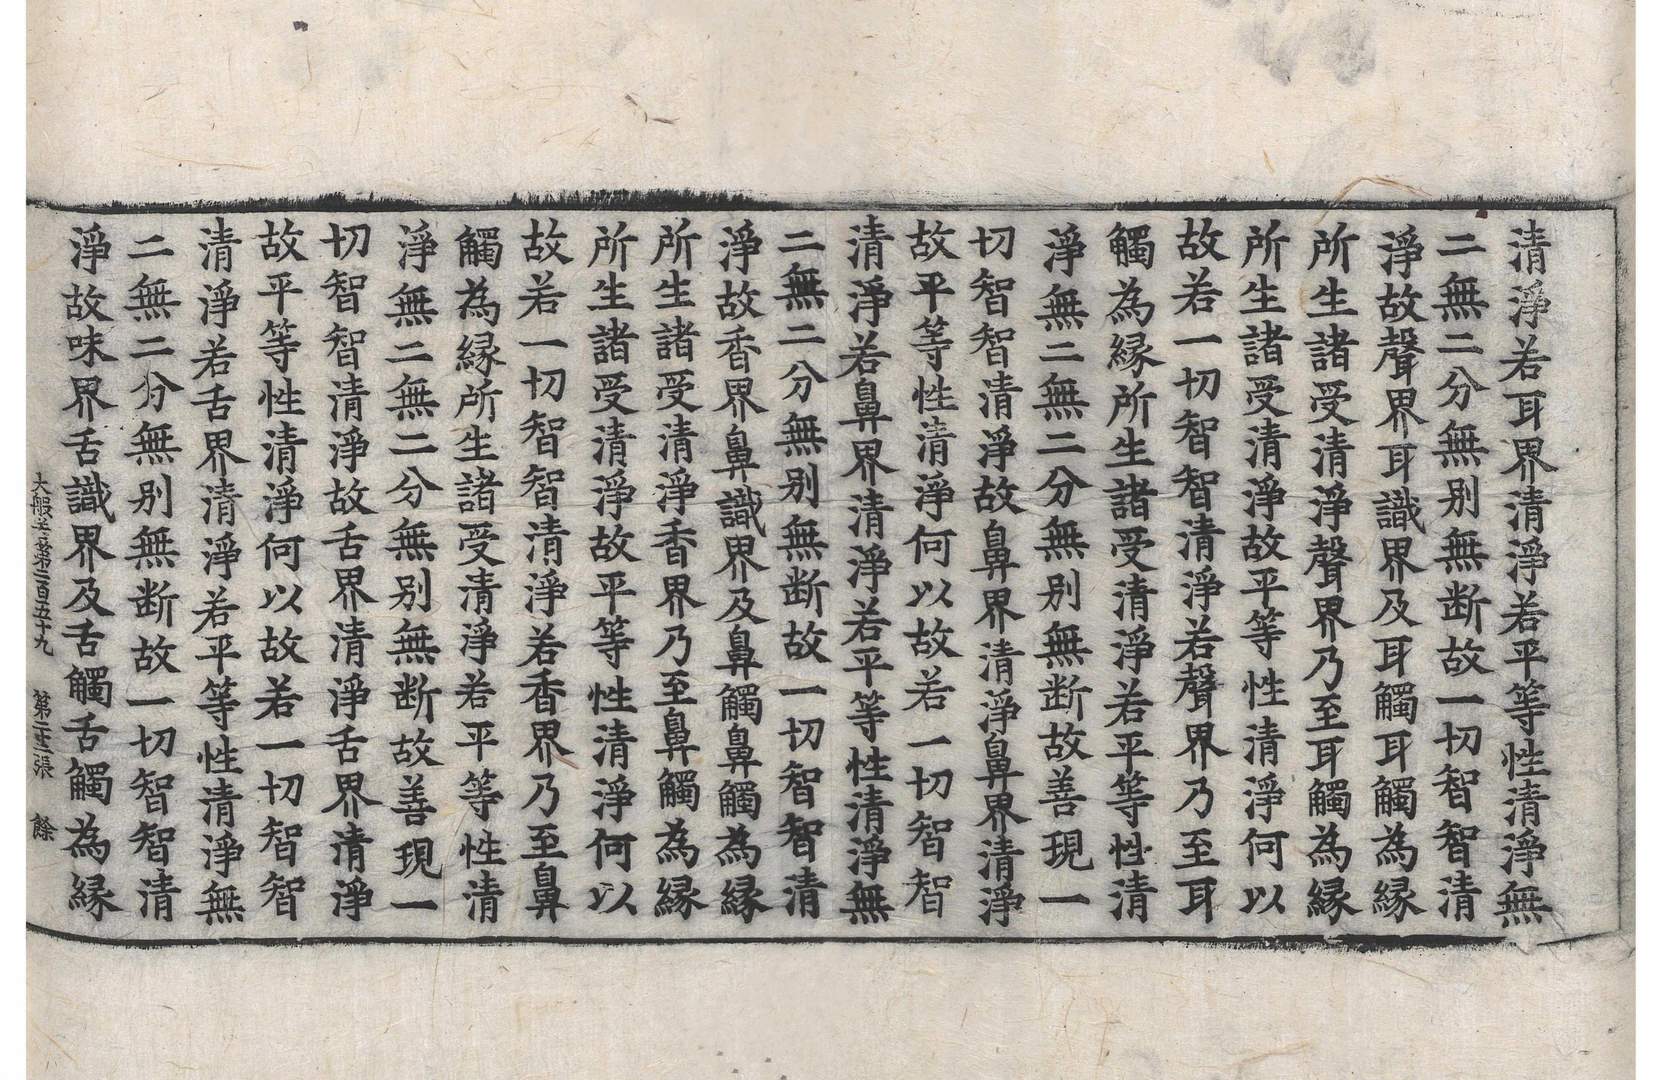 清淨若耳界清淨若平等性清淨無
二無二分無别無断故一切智智清
淨故聲界耳識界及耳觸耳觸為縁
所生諸受清淨聲界乃至耳觸為縁
所生諸受清淨故平等性清淨何以
故若一切智智清淨若聲界乃至耳
觸為縁所生諸受清淨若平等性清
淨無二無二分無别無断故善現一
切智智清淨故鼻界清淨鼻界清淨
故平等性清淨何以故若一切智智
清淨若鼻界清淨若平等性清淨無
二無二分無别無断故一切智智清
淨故香界鼻識界及鼻觸鼻觸為縁
所生諸受清淨香界乃至鼻觸為縁
所生諸受清淨故平等性清淨何以
故若一切智智清淨若香界乃至鼻
觸為縁所生諸受清淨若平等性清
淨無二無二分無别無断故善現一
切智智清淨故舌界清淨舌界清淨
故平等性清淨何以故若一切智智
清淨若舌界清淨若平等性清淨無
二無二分無别無断故一切智智清
淨故味界舌識界及舌觸舌觸為縁
大般第二百五十九 第二張 餘